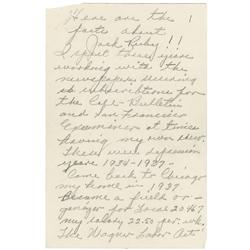 Here are the 1
facts about
Jack Ruby!!
I spent three years
working with the
newspapers
subscriptions for
the Call-Bulletin
and San Francisco
Examiner at times
having my own crew.
These were depression
years 1934-1937-
Came back to Chicago
my home in 1937
Became a field or-
ganizer for Local 20467
my salary 22.50 per. wk.
The Wagner Labor Act